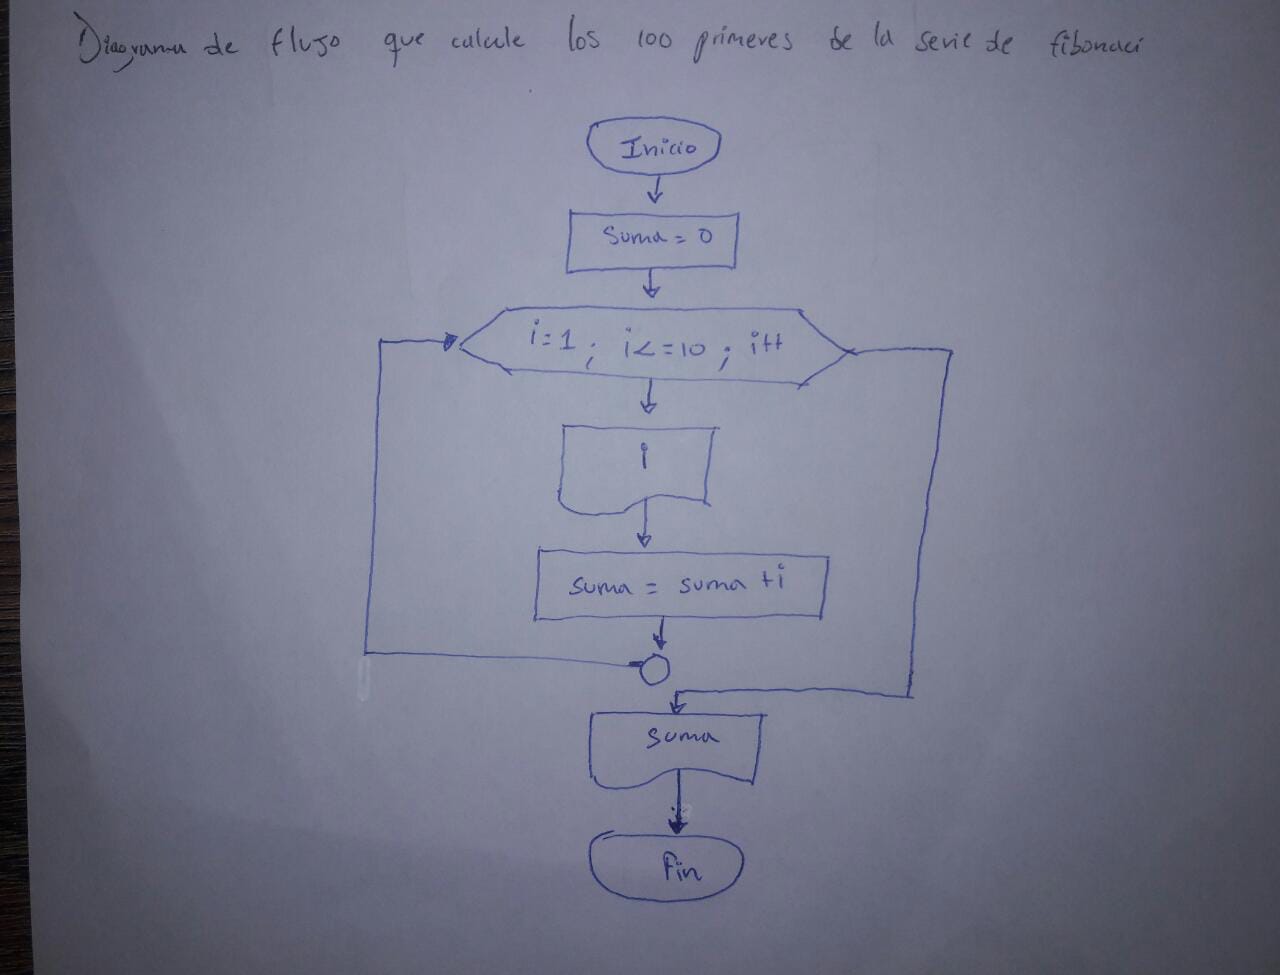 Diagrama de flujo que calcule los 100 primeros de la serie de fibonaci
Inicio
Suma = 0
i=1 ; i<=10 ; i++
i
suma = suma +i
suma
Fin